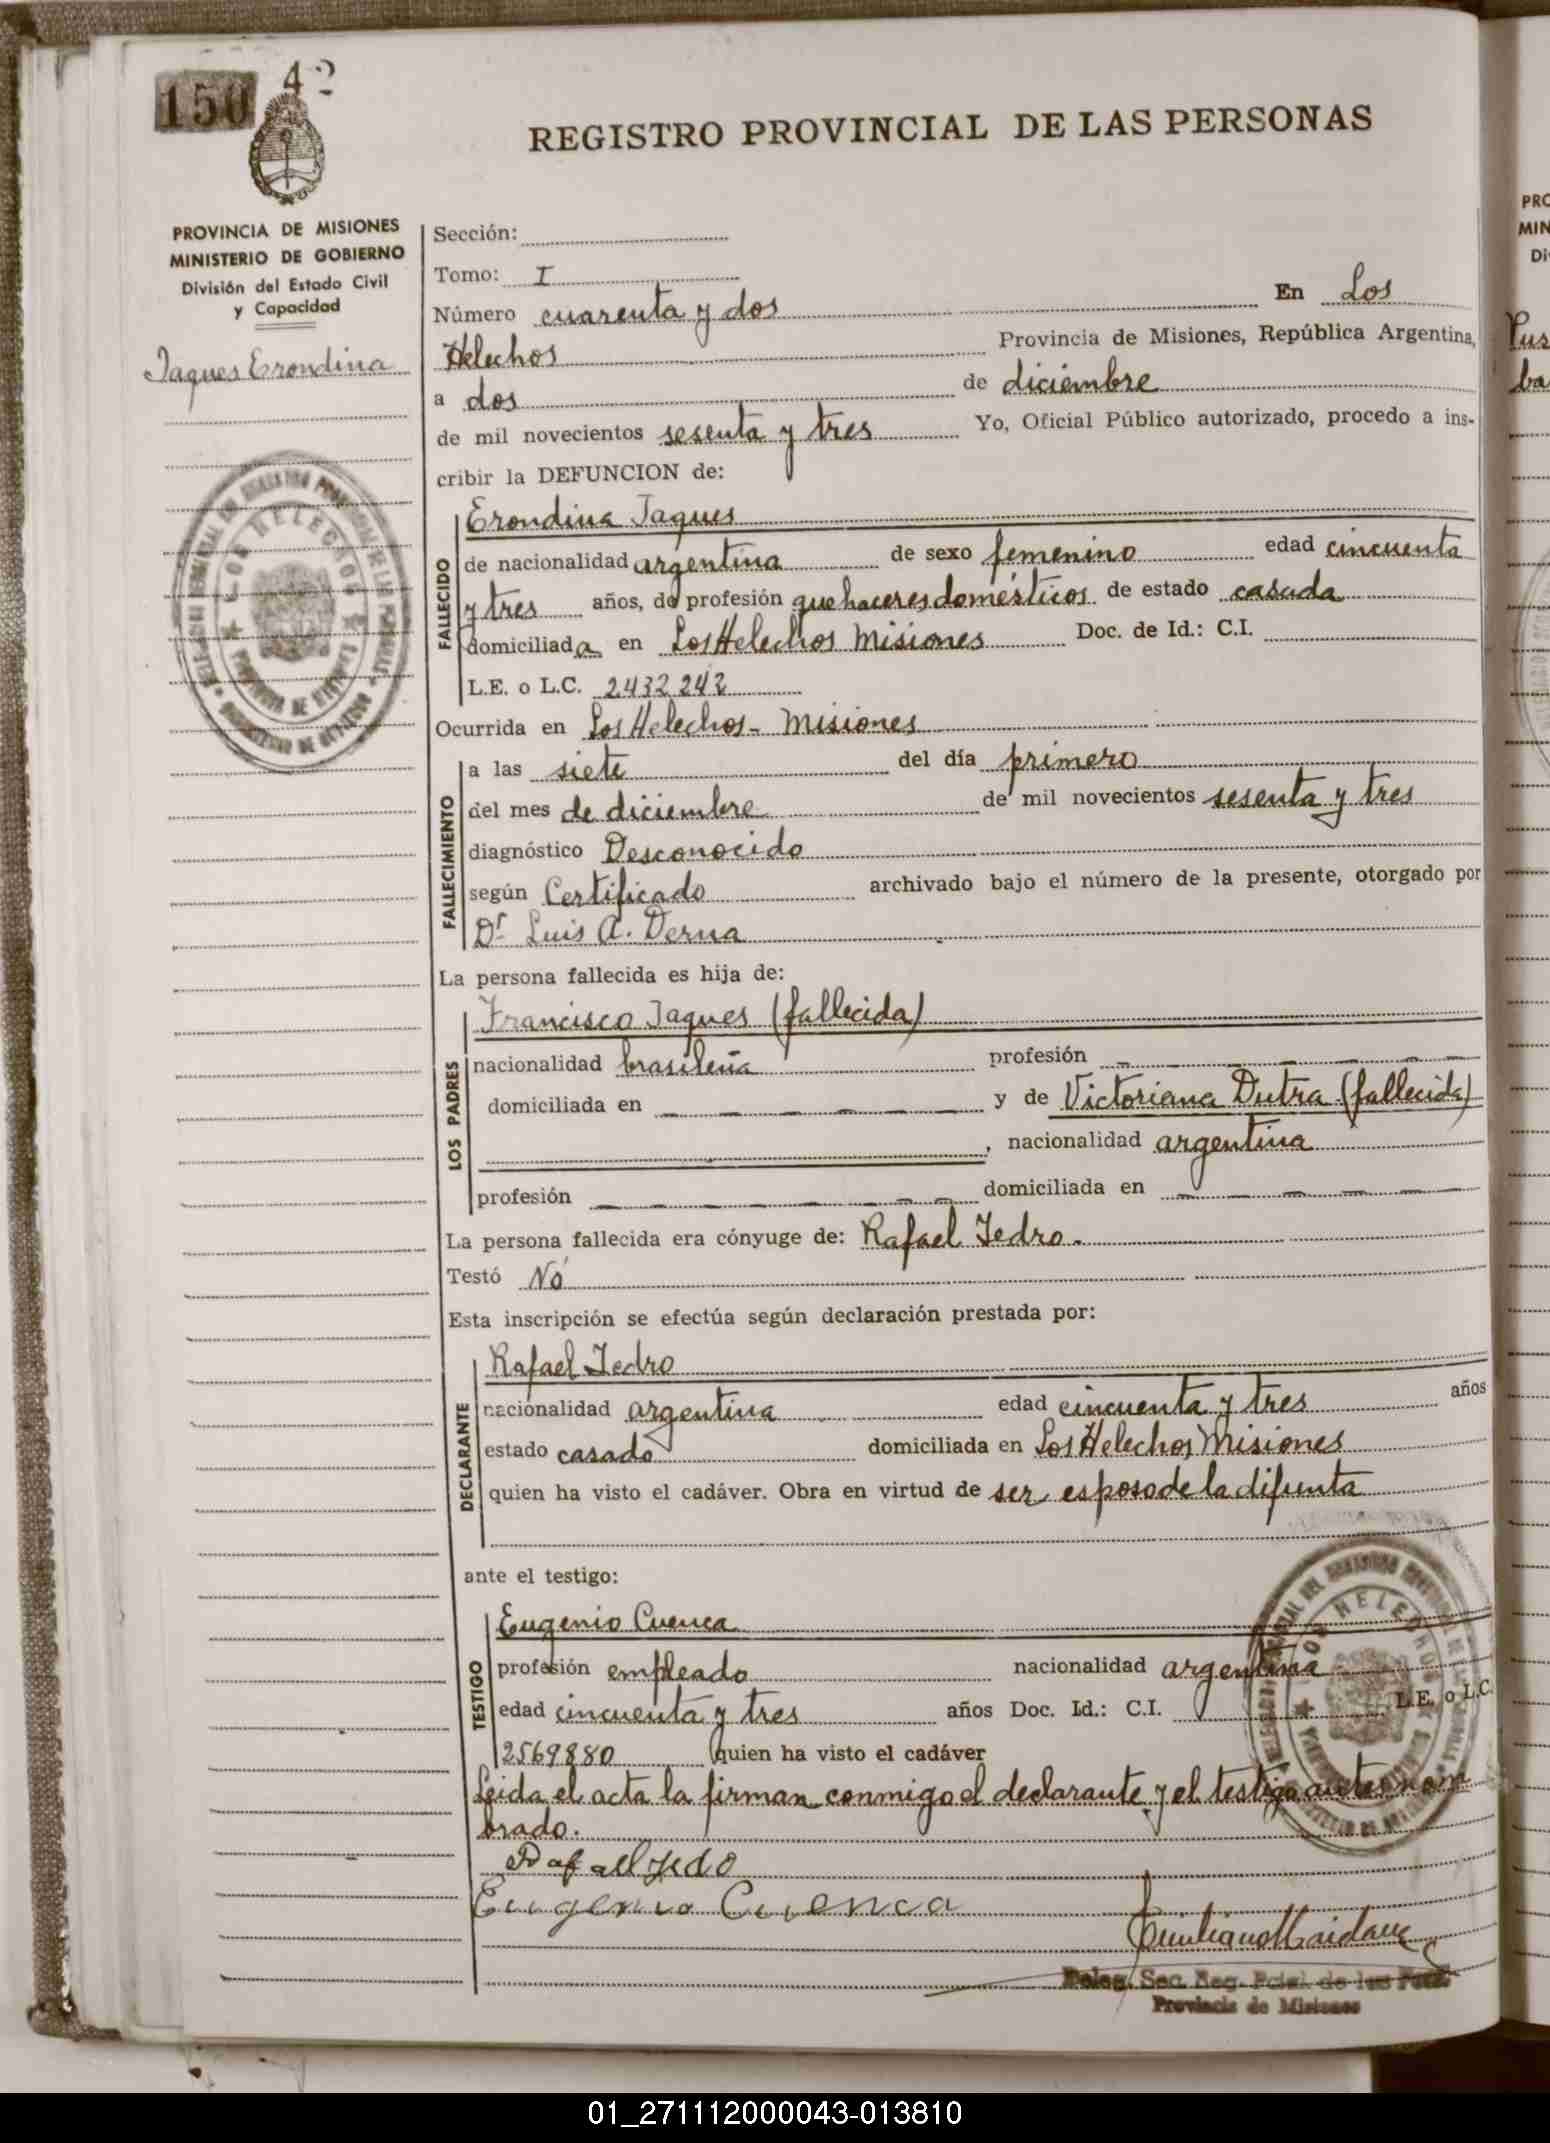 150
42
REGISTRO PROVINCIAL DE LAS PERSONAS
PROVINCIA DE MISIONES
MINISTERIO DE GOBIERNO
División del Estado Civil
y Capacidad
Jaques Erondina
Sección:
Tomo: I
Número cuarenta y dos En Los
Helechos Provincia de Misiones, República Argentina,
a dos de diciembre
de mil novecientos sesenta y tres Yo, Oficial Público autorizado, procedo a ins-
cribir la DEFUNCION de:
FALLECIDO
Erondina Jaques
de nacionalidad argentina de sexo femenino edad cincuenta
y tres años, de profesión quehaceres domésticos de estado casada
domiciliada en Los Helechos Misiones Doc. de Id.: C.I.
L.E. o L.C. 2432242
Ocurrida en Los Helechos - Misiones
FALLECIMIENTO
a las siete del día primero
del mes de diciembre de mil novecientos sesenta y tres
diagnóstico Desconocido
según Certificado archivado bajo el número de la presente, otorgado por
Dr. Luis A. Derna
La persona fallecida es hija de:
LOS PADRES
Francisco Jaques (fallecida)
nacionalidad brasileña profesión
domiciliada en y de Victoriana Dutra (fallecida)
, nacionalidad argentina
profesión domiciliada en
La persona fallecida era cónyuge de: Rafael Jedro.
Testó No
Esta inscripción se efectúa según declaración prestada por:
DECLARANTE
Rafael Jedro
nacionalidad argentina edad cincuenta y tres años
estado casado domiciliada en Los Helechos, Misiones
quien ha visto el cadáver. Obra en virtud de ser esposo de la difunta
ante el testigo:
TESTIGO
Eugenio Cuenca
profesión empleado nacionalidad argentina
edad cincuenta y tres años Doc. Id.: C.I. L.E. o L.C.
2569880 quien ha visto el cadáver
Leida el acta la firman conmigo el declarante y el testigo antes nom
brado.
Eugenio Cuenca
Deleg. Sec. Reg. Pcial. de las Pers.
Provincia de Misiones
LOS HELECHOS
PROVINCIA DE MISIONES
01_271112000043-013810